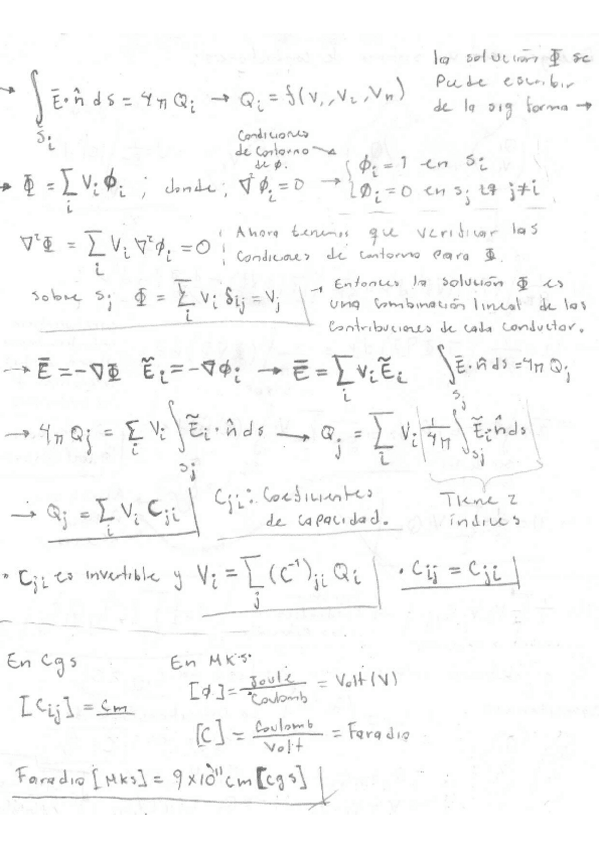 la solución Φ se
→ ∫_{S_i} Ē·n̂ ds = 4π Q_i → Q_i = f(V_1, V_2, V_n) Puede escribir
de la sig forma →
Condiciones
de Contorno
de φ.
→ Φ = Σ_i V_i φ_i ; donde; ∇²φ_i = 0 → { φ_i = 1 en S_i
φ_i = 0 en S_j j≠i
∇²Φ = Σ_i V_i ∇²φ_i = 0 Ahora tenemos que verificar las
Condiciones de contorno para Φ.
Sobre S_j Φ = Σ_i V_i δ_ij = V_j → Entonces la solución Φ es
una combinación lineal de las
Contribuciones de cada conductor.
→ Ē = -∇Φ Ẽ_i = -∇φ_i → Ē = Σ_i V_i Ẽ_i ∫_{S_j} Ē·n̂ ds = 4π Q_j
→ 4π Q_j = Σ_i V_i ∫_{S_j} Ẽ_i·n̂ ds → Q_j = Σ_i V_i | 1/4π ∫_{S_j} Ẽ_i n̂ ds |
→ Q_j = Σ_i V_i C_ji C_ji: Coeficientes
de capacidad.
Tiene 2
índices
• C_ji es invertible y V_i = Σ_j (C⁻¹)_ji Q_i • C_ij = C_ji
En Cgs En MKS:
[C_ij] = cm [φ] = Joule/Coulomb = Volt (V)
[C] = Coulomb/Volt = Faradio
Faradio [MKS] = 9×10¹¹ cm [Cgs]